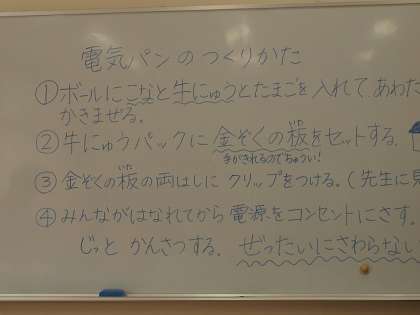 電気パンのつくりかた
①ボールにこなと牛にゅうとたまごを入れて あわた
かきまぜる。
②牛にゅうパックに金ぞくの板をセットする。
手がきれるのでちゅうい!
③金ぞくの板の両はしに クリップをつける。(先生に見
④みんながはなれてから 電源をコンセントにさす。
じっと かんさつする。 ぜったいにさわらない